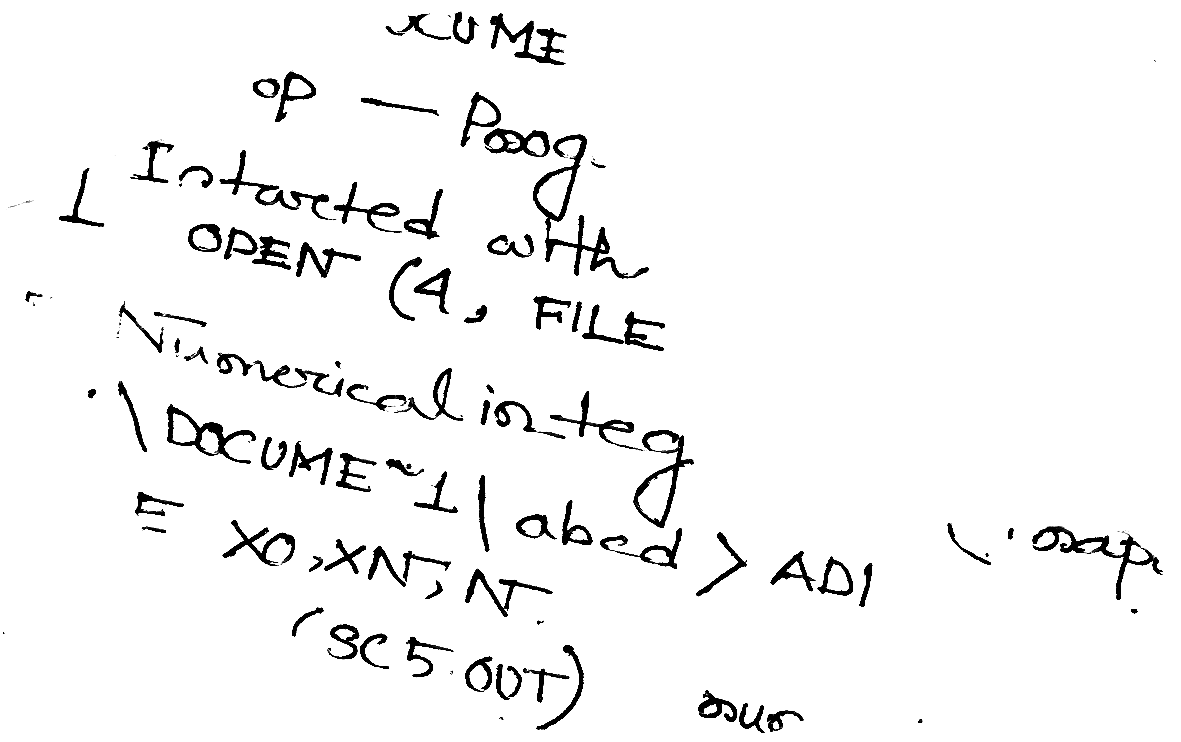 XUME
OP — Prog.
1 Istarted with
OPEN (4, FILE
Numerical integ
.\DOCUME~1\abcd>ADI
= XO,XN,N.
(SC5.OUT)